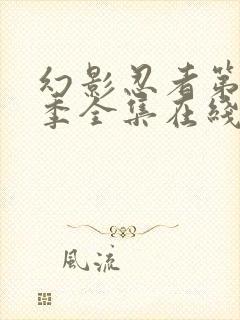 幻影忍者第
季全集在綫
風流